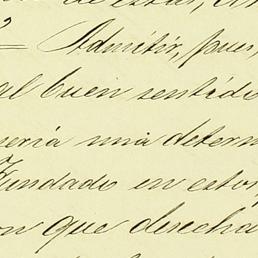 de estas,
2º = Admitir, pues,
al buen sentido
sería una determ
Fundado en estos
on que derecha